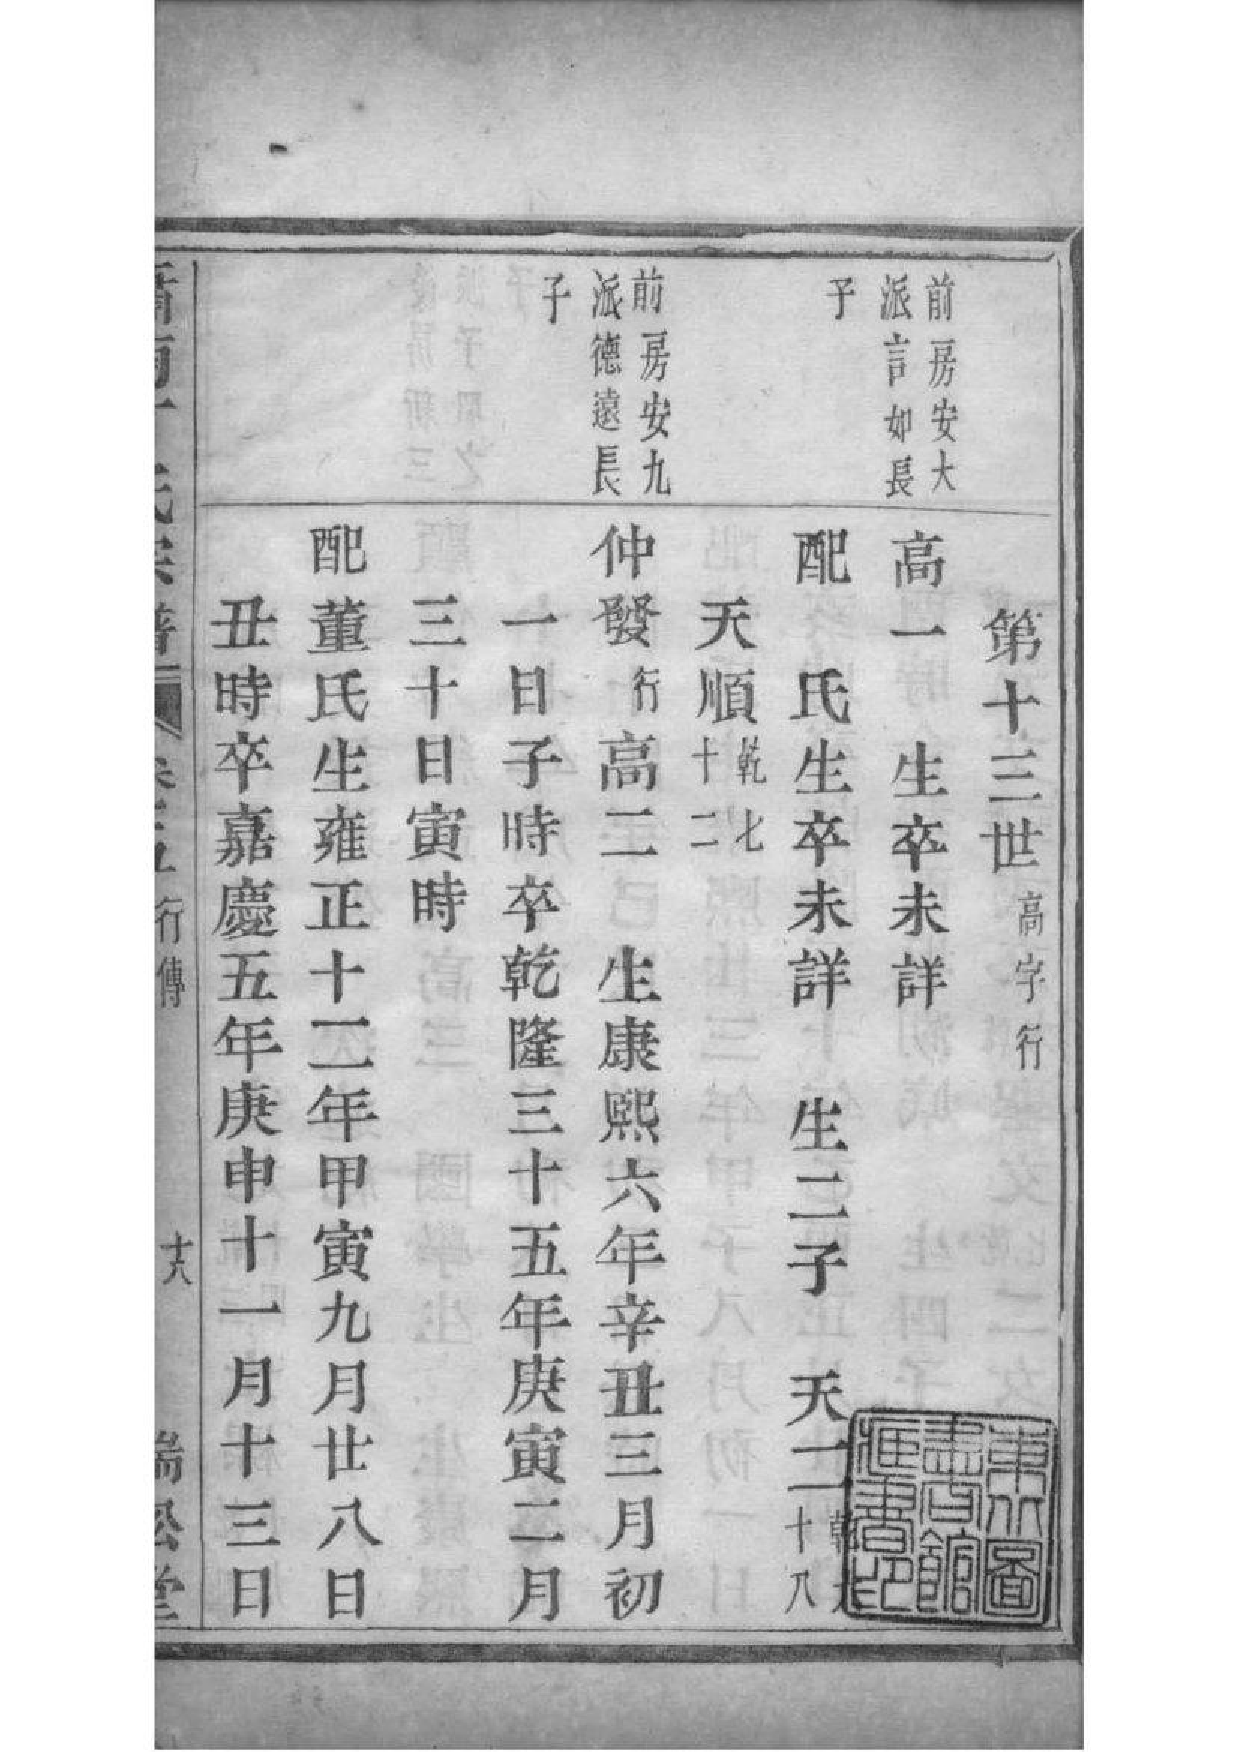 第十三世高字行
前房安大
派言如長
子
高一　生卒未詳
配　氏生卒未詳　生二子　天一乾
十八
天順乾七
十二
前房安九
派德遠長
子
仲發行高二　生康熙六年辛丑三月初
一日子時卒乾隆三十五年庚寅二月
三十日寅時
配董氏生雍正十二年甲寅九月廿八日
丑時卒嘉慶五年庚申十一月十三日
氏宗譜
行傳
十八
松堂